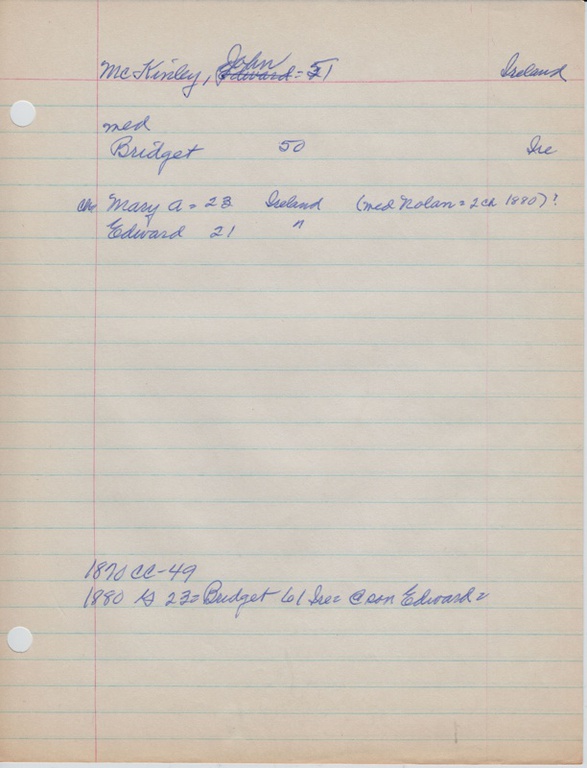 McKinley, John Edward = 51 Ireland
med
Bridget 50 Ire
ch Mary A = 23 Ireland (med Nolan = 2 ch 1880)?
Edward 21 "
1870 CC-49
1880 23 = Bridget 61 Ire = @ son Edward =